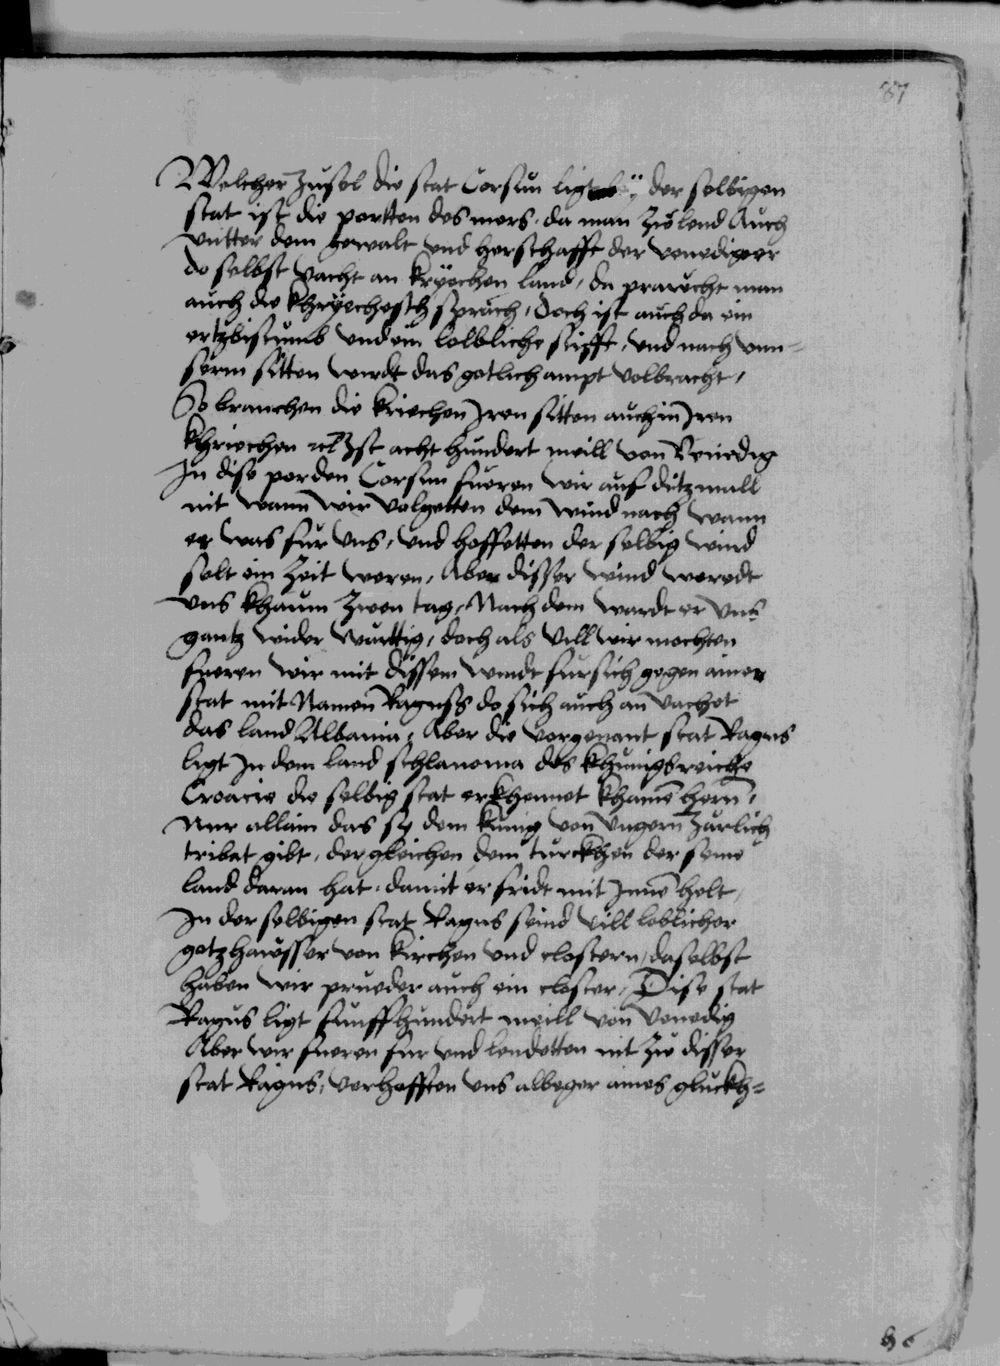 87
Welcher Jnsel die stat Corfun ligt bÿ der selbigen
stat ist die portten des mers, da man zuͦ lend Auch
vntter dem gewalt vnd herschafft der venediger
do selbst vacht an kryechen land, da praucht man
auch die khryechesch sprach, doch ist auch da ein
ertzbistumb vnd ein lobliche stifft, vnd nach vnn-
serm sitten wirdt das gotlich ampt volbracht,
So brauchen die kriechen Jren sitten auch in Jren
khriechen Ist acht hundert meill von Venedig
In dise porden Corfun fueren wir auf ditzmall
nit wann wir volgetten dem wind nach wann
er was fur vns, vnd hoffetten der selbig wind
solt ein zeit weren, Aber disser wind weredt
vns khaum zwen tag, Nach dem wardt er vns
gantz wider wurttig, doch als vill wir mochten
fueren wir mit dissem windt fursich gegen ainer
stat mit Namen Raguss do sich auch an vachet
das land Albania, Aber die vorgenant stat Ragus
ligt Jn dem land schlanonia des khunigkreichs
Croacie die selbig stat erkhennet khainē hern,
Nur allain das sy dem kunig von vngern Järlich
tribat gibt, der gleichen dem turckhen der seine
land daran hat, damit er fridt mit Jnnē helt,
In der selbigen stat Ragus seind vill loblicher
gotzhaüsser von kirchen vnd clostern, daselbst
haben wir prueder auch ein closter, Dise stat
Ragus ligt funffhundert meill von Venedig
Aber wir fueren fur vnd lendetten nit zuͦ disser
stat Ragus, verhofften vns albeger aines gluckh-